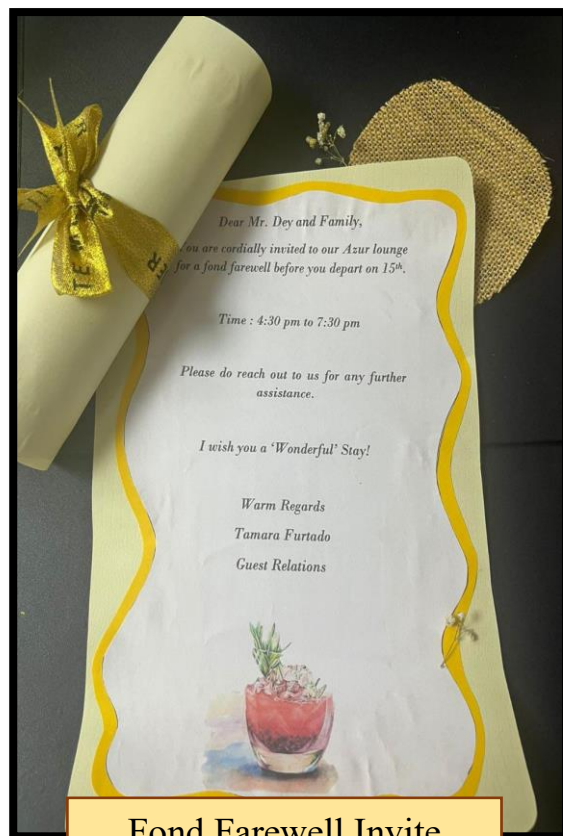 Dear Mr. Dey and Family,
ou are cordially invited to our Azur lounge
for a fond farewell before you depart on 15th.
Time : 4:30 pm to 7:30 pm
Please do reach out to us for any further
assistance.
I wish you a ‘Wonderful’ Stay!
Warm Regards
Tamara Furtado
Guest Relations
Fond Farewell Invite